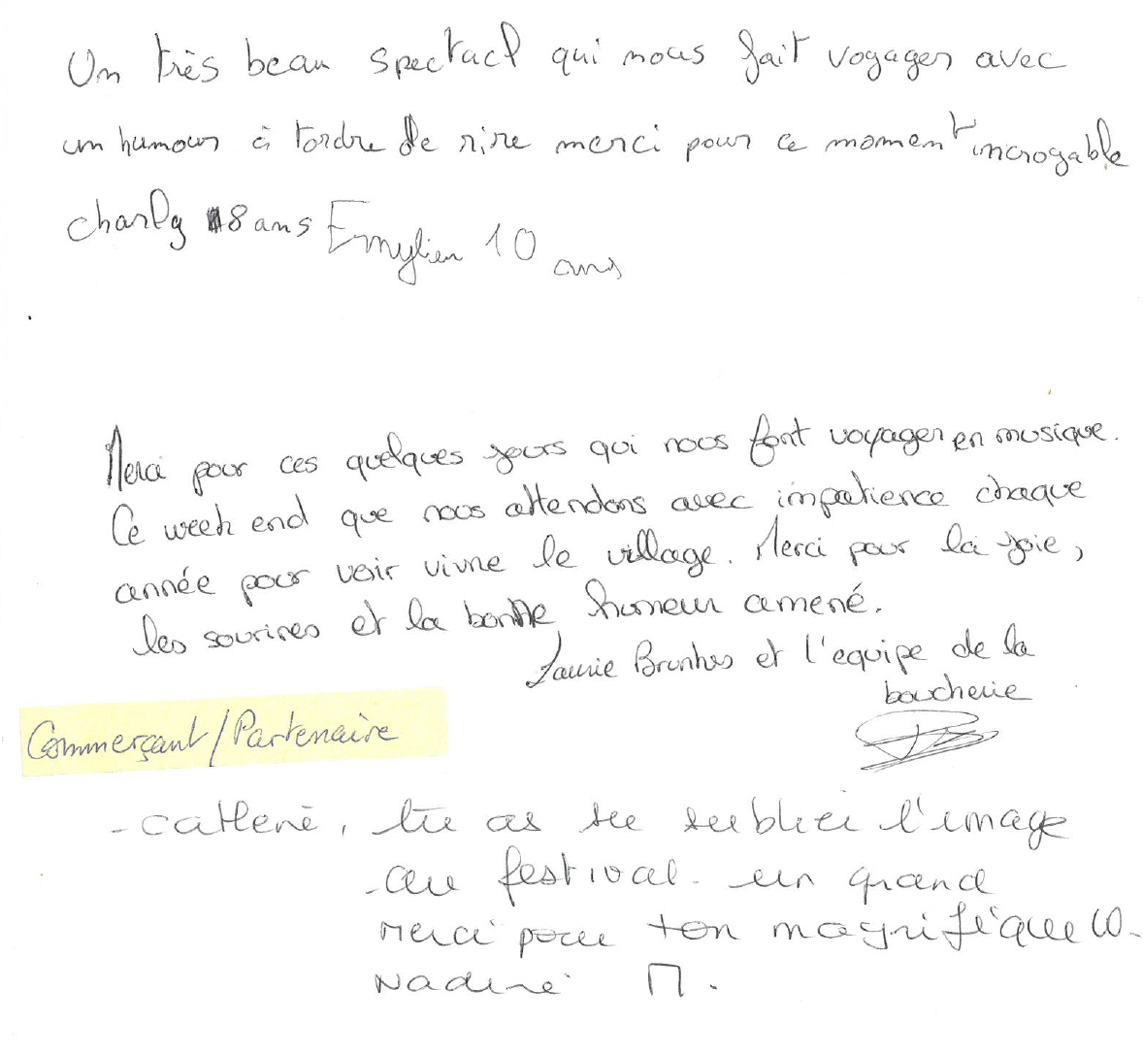 Un très beau spectacl qui nous fait voyager avec
un humour à tordre de rire merci pour ce moment incroyable
charly 8 ans Emylien 10 ans
Merci pour ces quelques jours qui nous font voyager en musique.
Ce week end que nous attendons avec impatience chaque
année pour voir vivre le village. Merci pour la joie,
les sourires et la bonne humeur amené.
Laurie Brunhes et l'equipe de la
boucherie
Commerçant/Partenaire
- tu as su sublier l'image
au festival. un grand
merci pour ton magnifique
Nadine M.